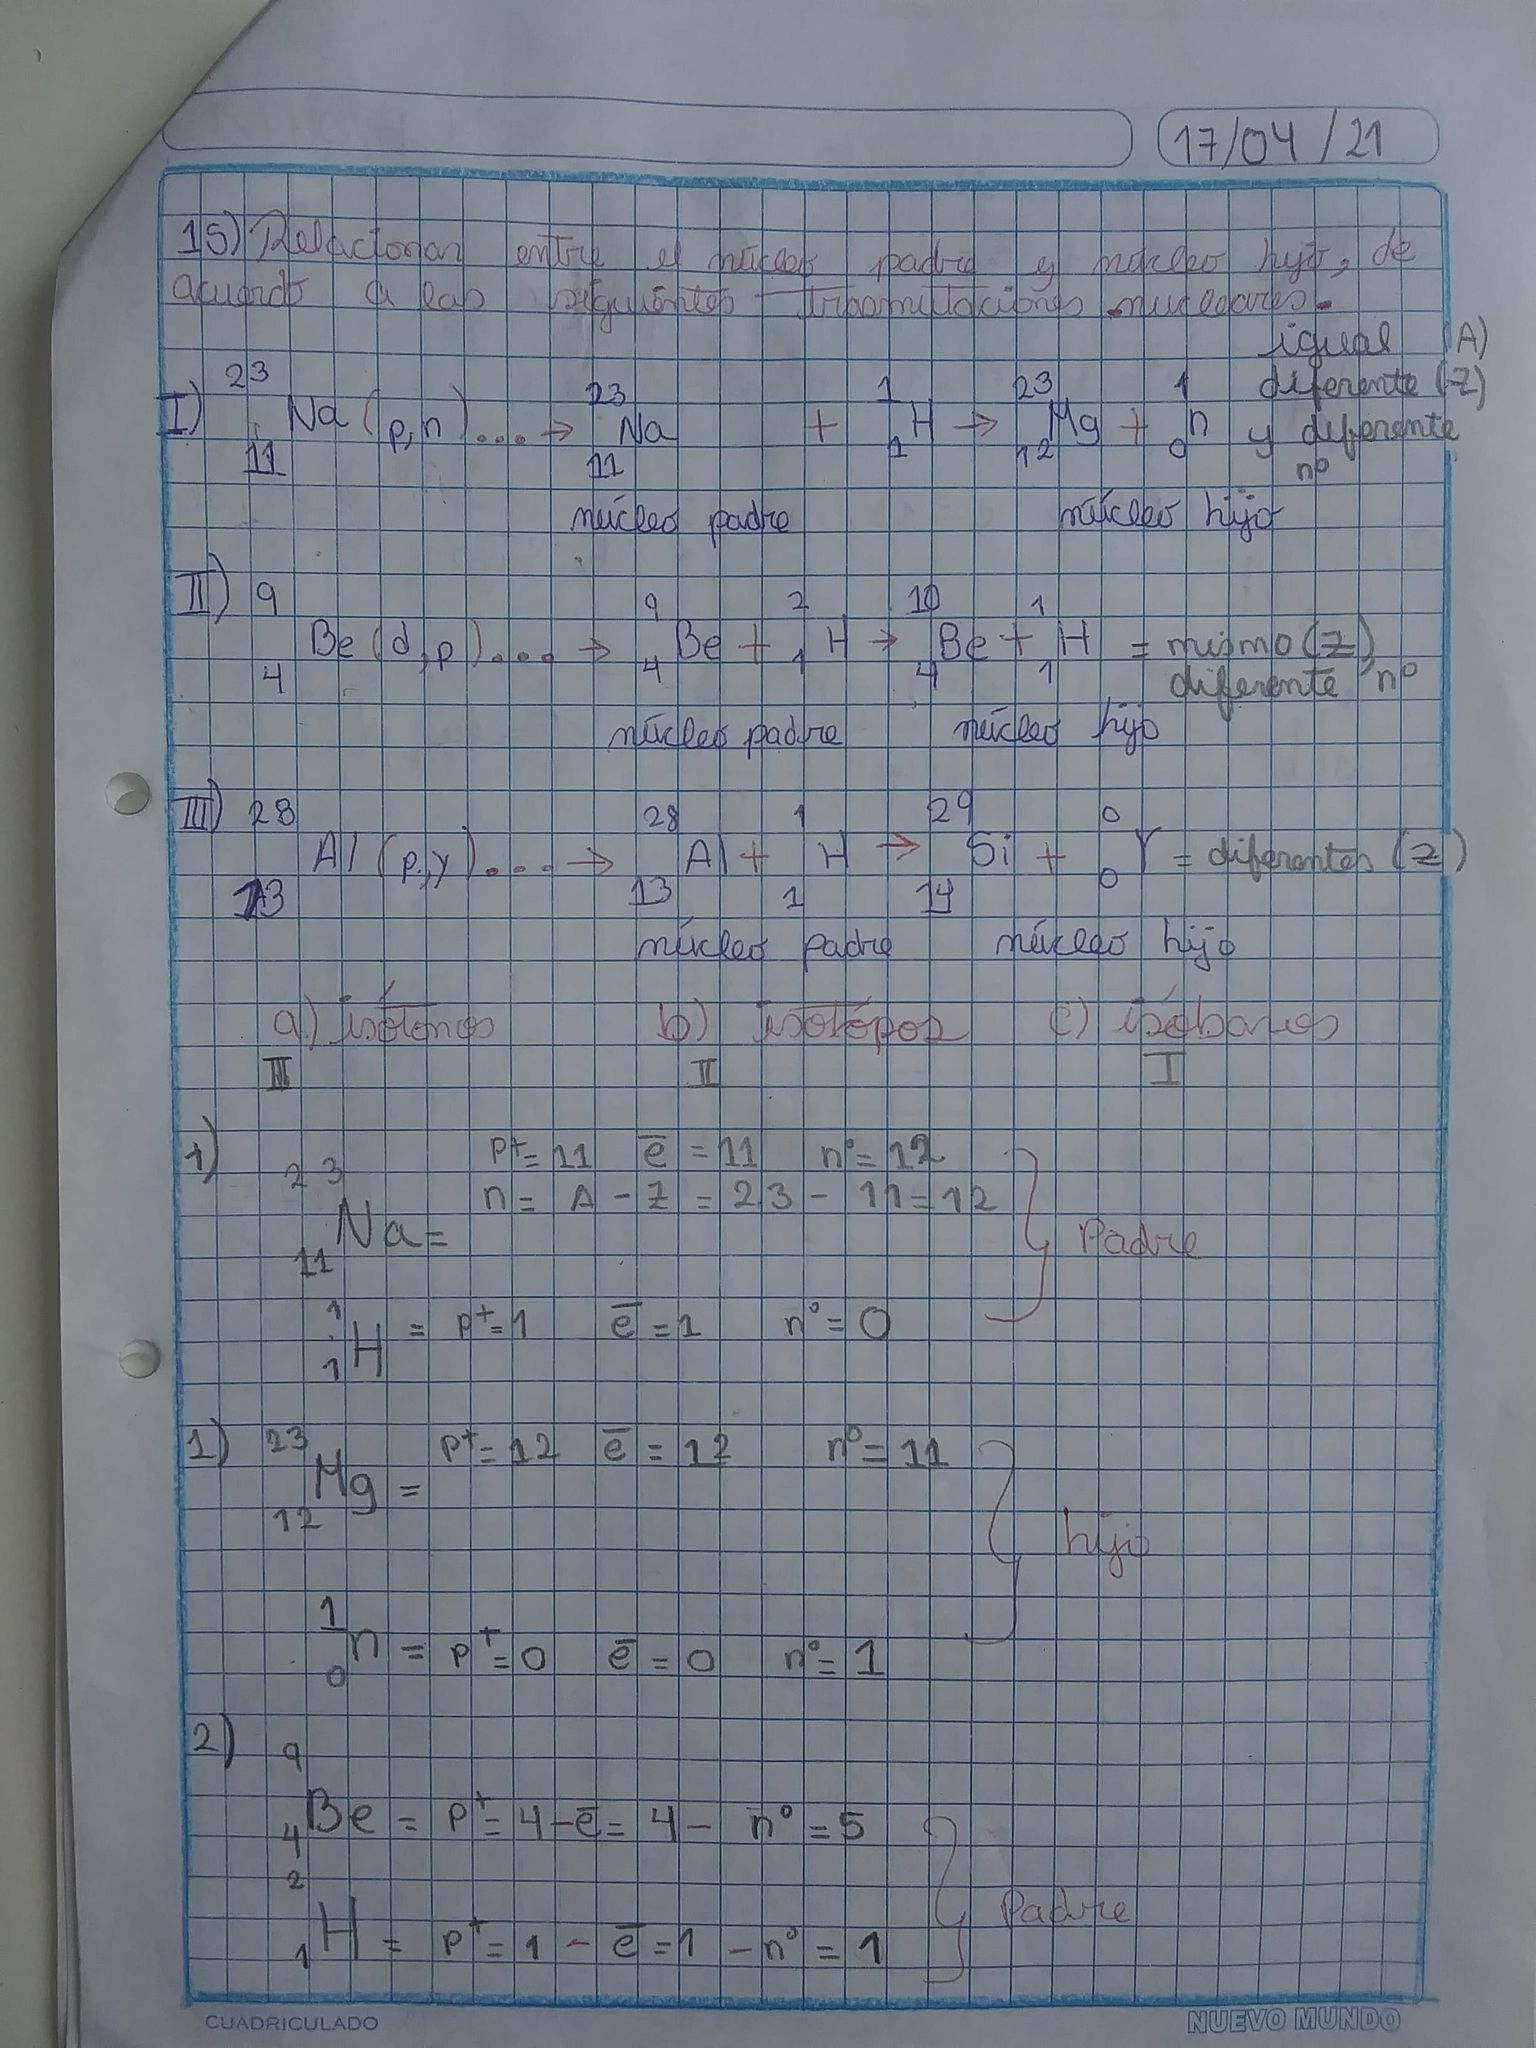 17/04/21
15) Relacionar entre el núcleo padre y núcleo hijo, de
acuerdo a las siguientes trasmutaciones nucleares.
igual (A)
I) 23 11 Na (p,n)....→ 23 11 Na + 1 1 H → 23 12 Mg + 1 0 n diferente (Z)
y diferente
nº
núcleo padre núcleo hijo
II) 9 4 Be (d,p)....→ 9 4 Be + 2 1 H → 10 4 Be + 1 1 H = mismo (Z),
diferente nº
núcleo padre núcleo hijo
III) 28 13 Al (p,γ)....→ 28 13 Al + 1 1 H → 29 14 Si + 0 0 γ = diferentes (Z)
núcleo padre núcleo hijo
a) isótonos b) isotópos c) isóbaros
III II I
1) 23 11 Na = p+ = 11 e̅ = 11 nº = 12
n = A - Z = 23 - 11 = 12
Padre
1 1 H = p+ = 1 e̅ = 1 nº = 0
1) 23 12 Mg = p+ = 12 e̅ = 12 nº = 11
hijo
1 0 n = p+ = 0 e̅ = 0 nº = 1
2) 9 4 Be = p+ = 4 - e̅ = 4 - nº = 5
Padre
2 1 H = p+ = 1 - e̅ = 1 - nº = 1
CUADRICULADO NUEVO MUNDO